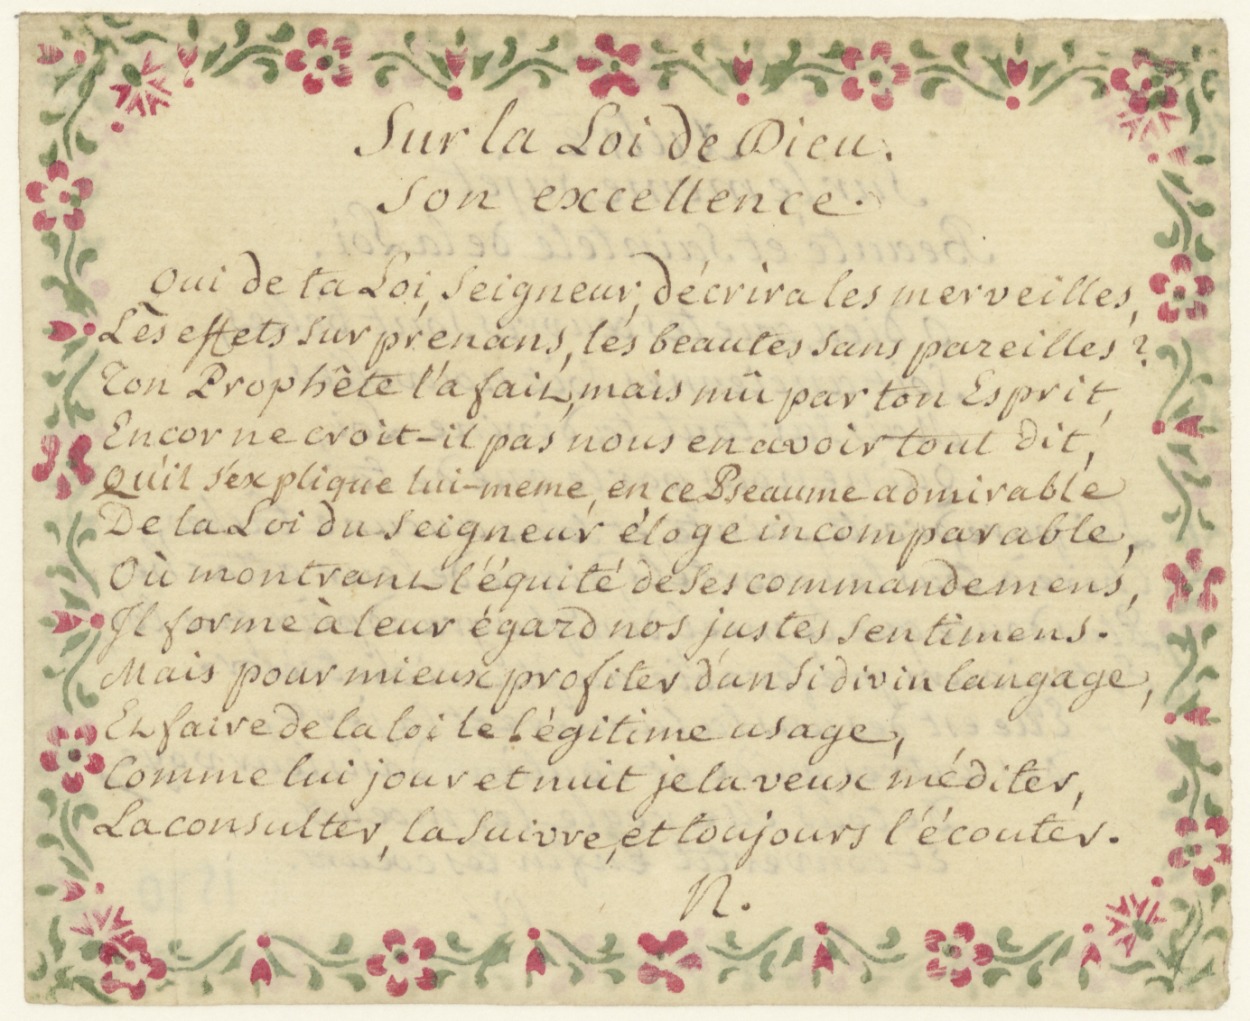 Sur la Loi de Dieu.
Son excellence.
Qui de ta Loi, Seigneur, décrira les merveilles,
Les effets surprenans, les beautes sans pareilles?
Ton Prophête l'a fait, mais mû par ton Esprit,
Encor ne croit-il pas nous en avoir tout dit,
Qu'il s'explique lui-meme, en ce Pseaume admirable
De la Loi du Seigneur éloge incomparable,
Où montrant l'équité de ses commandemens,
Il forme à leur égard nos justes sentimens.
Mais pour mieux profiter d'un si divin langage,
Et faire de la loi le légitime usage,
Comme lui jour et nuit je la veux méditer,
La consulter, la suivre, et toujours l'écouter.
N.